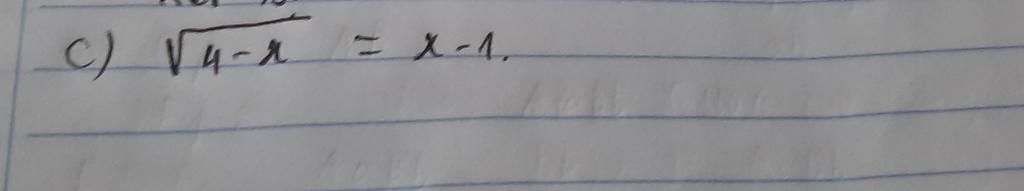 c) √4-x = x-1.